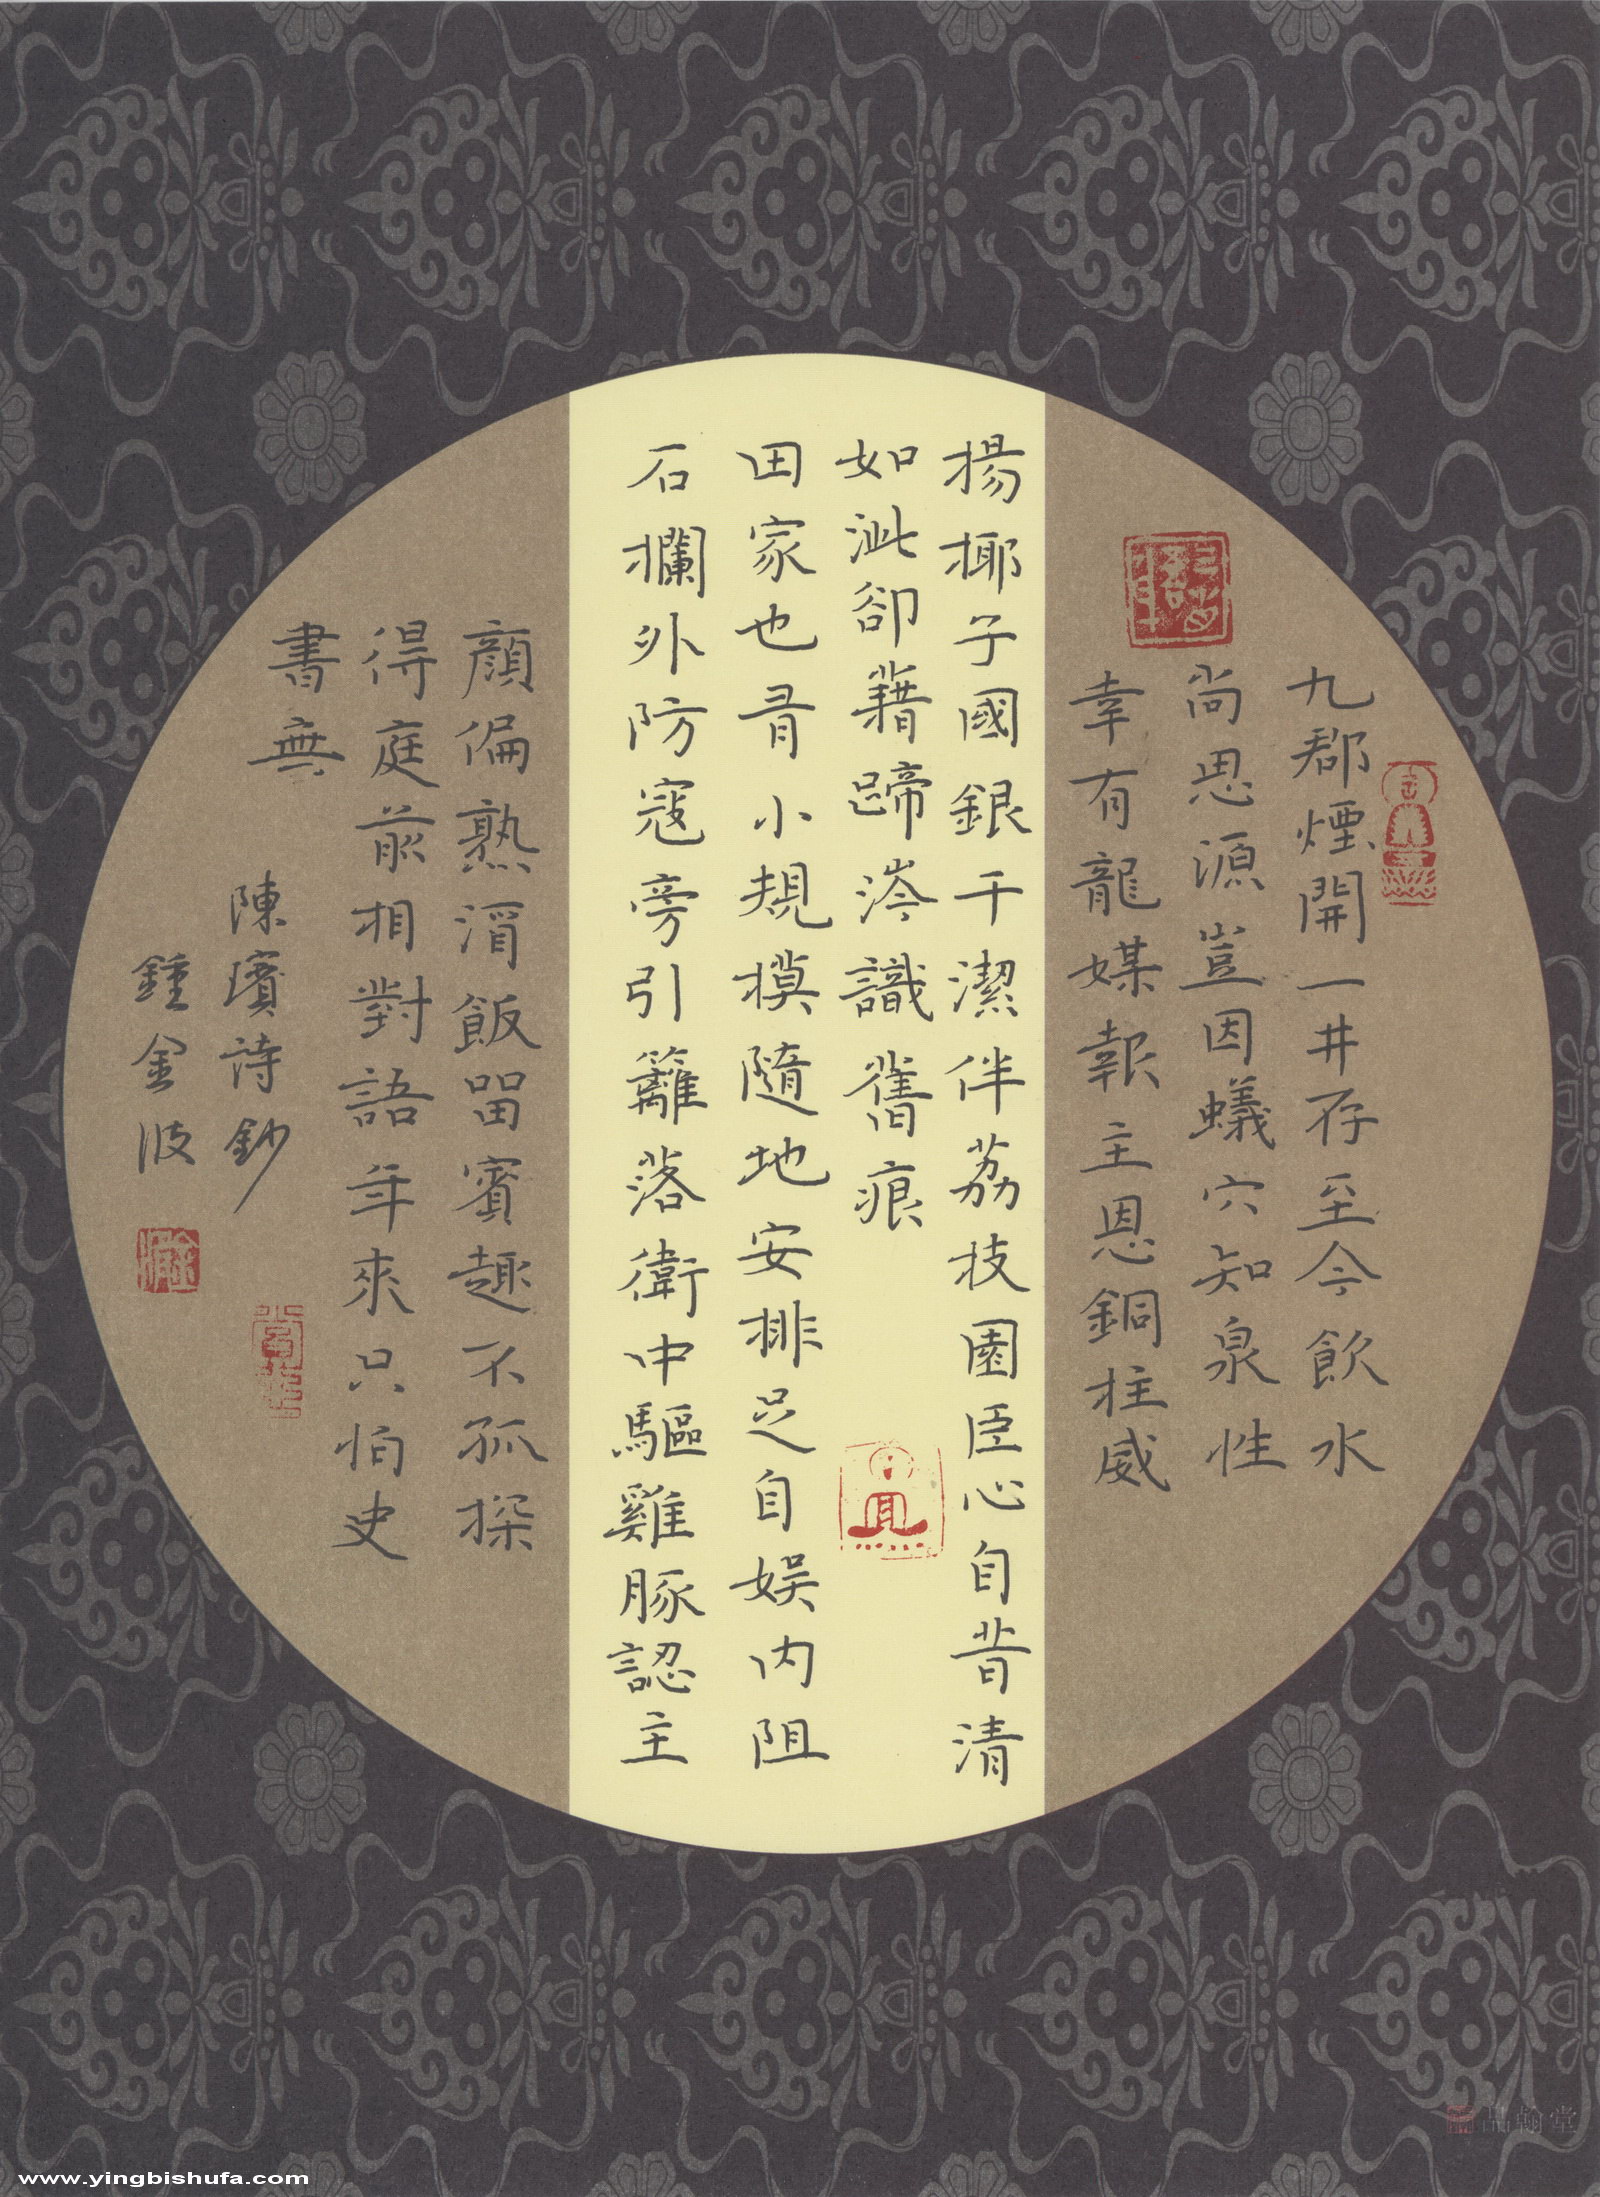 九郡煙開一井存至今飲水
尚思源豈因蟻穴知泉性
幸有龍媒報主恩銅柱威
揚椰子國銀干潔伴荔枝園臣心自昔清
如泚卻藉蹄涔識舊痕
田家也有小規模隨地安排足自娛內阻
石欄外防寇旁引籬落衛中驅雞豚認主
顏偏熟酒飯留賓趣不孤探
得庭前相對語年來只怕史
書無
陳璸詩鈔
鍾金波
品翰堂
www.yingbishufa.com